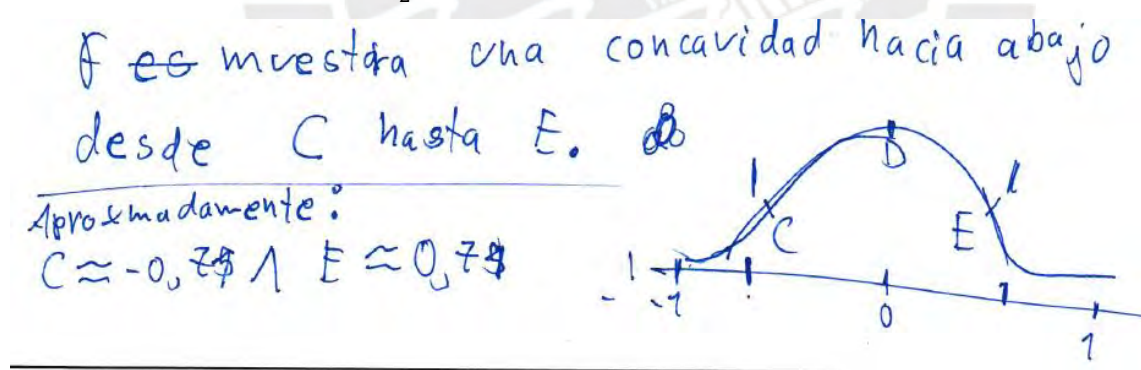 f muestra una concavidad hacia abajo
desde C hasta E.
Aproxmadamente:
C ≈ -0,7 ∧ E ≈ 0,7
D
C
E
-1
0
1